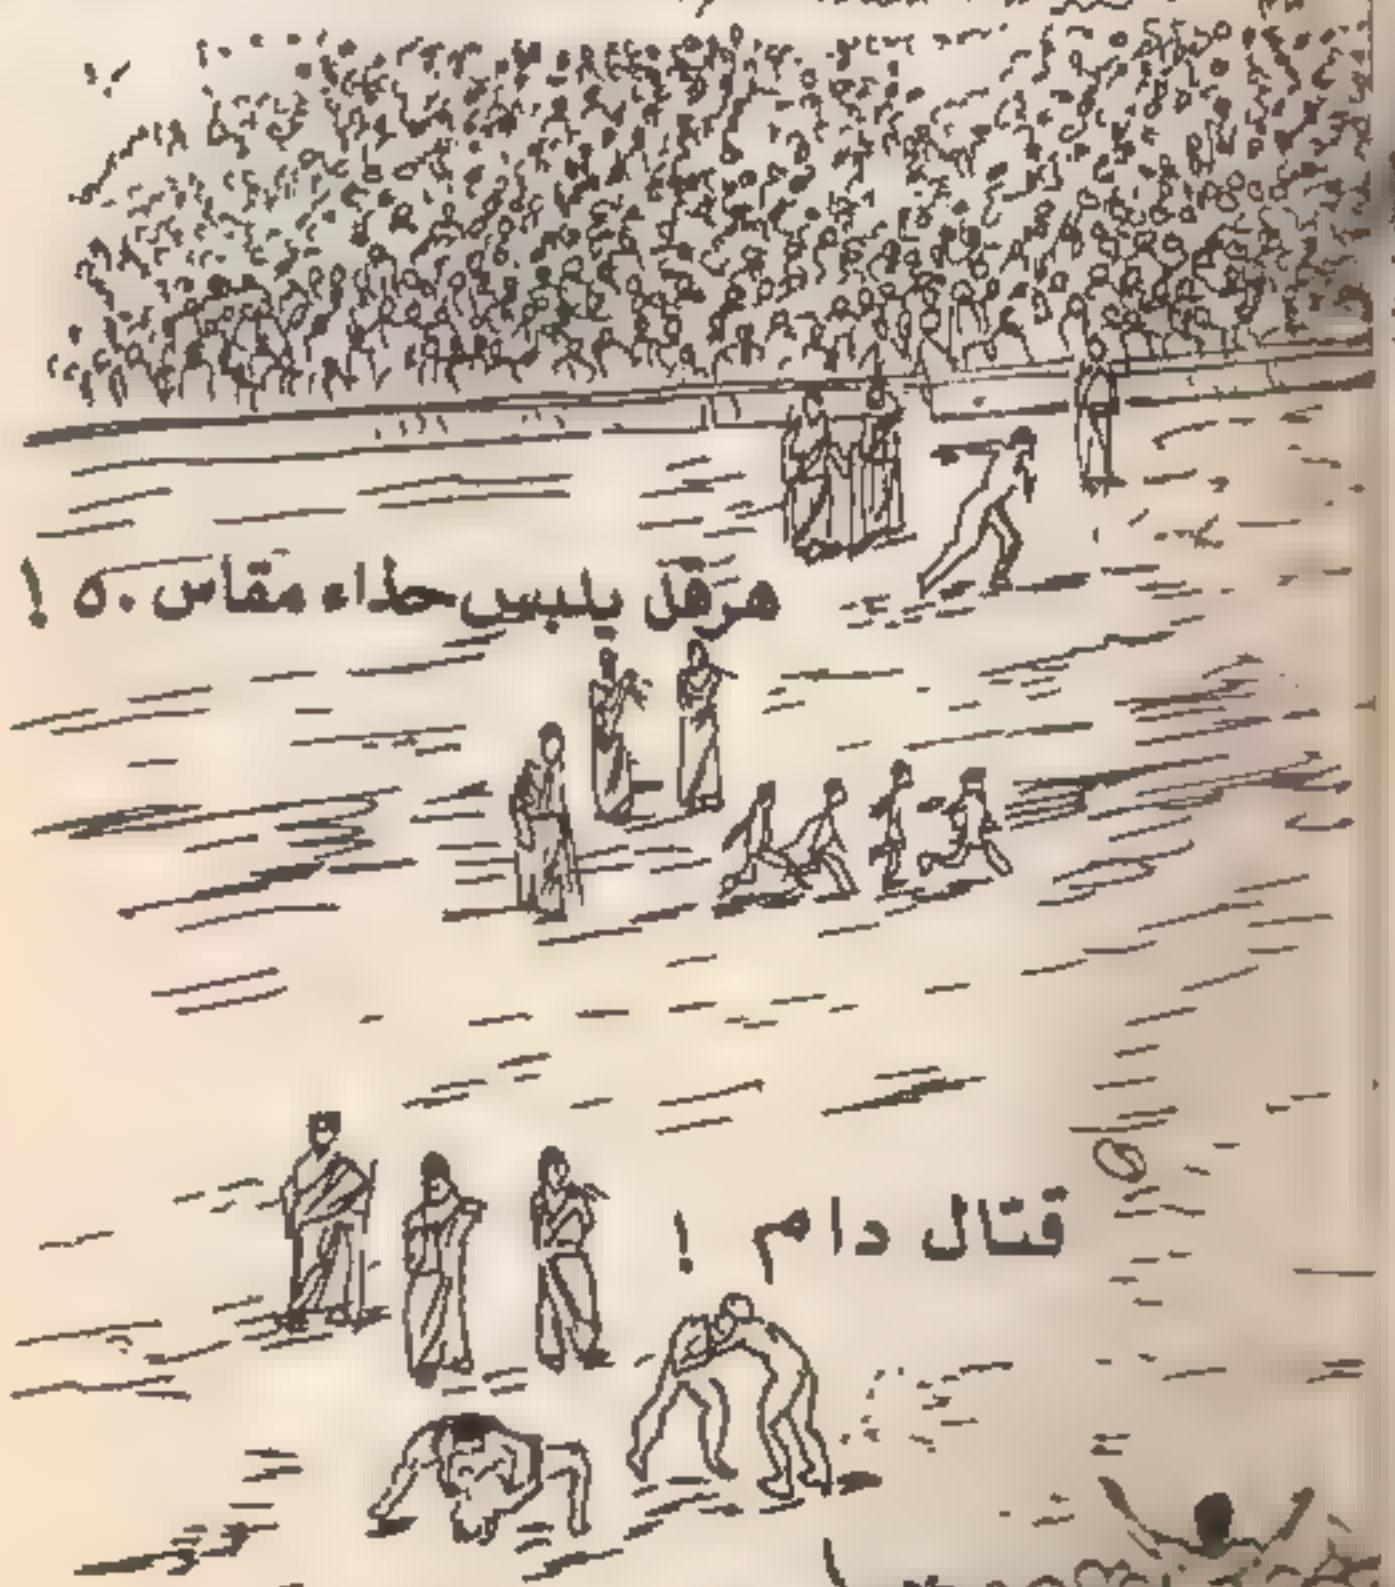 هرقل يلبس حذاء مقاس ٥٠ !
قتال دام !